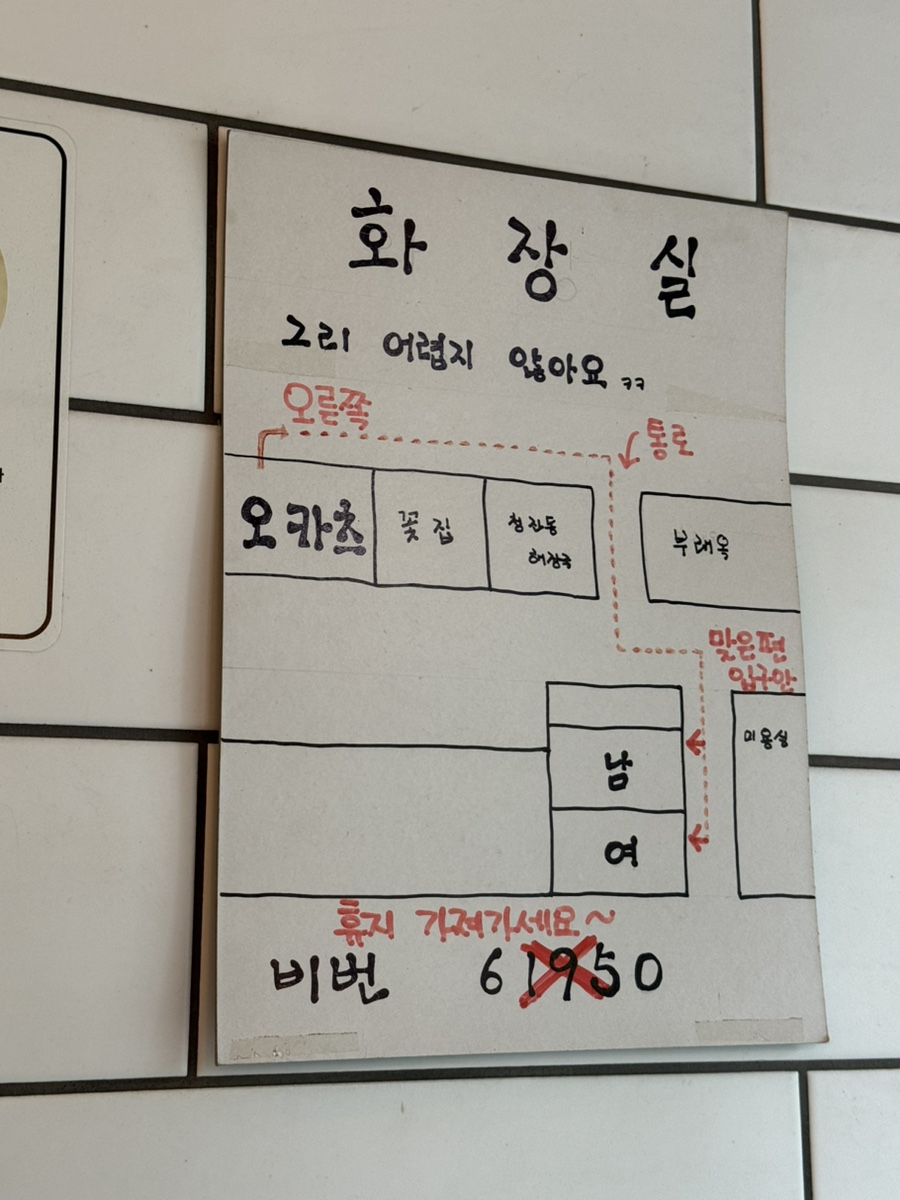 화장실
그리 어렵지 않아요 ㅋㅋ
오른쪽
통로
오카츠
꽃집
청진동
해장국
부래옥
맞은편
입구안
미용실
남
여
휴지 가져가세요~
비번 61950